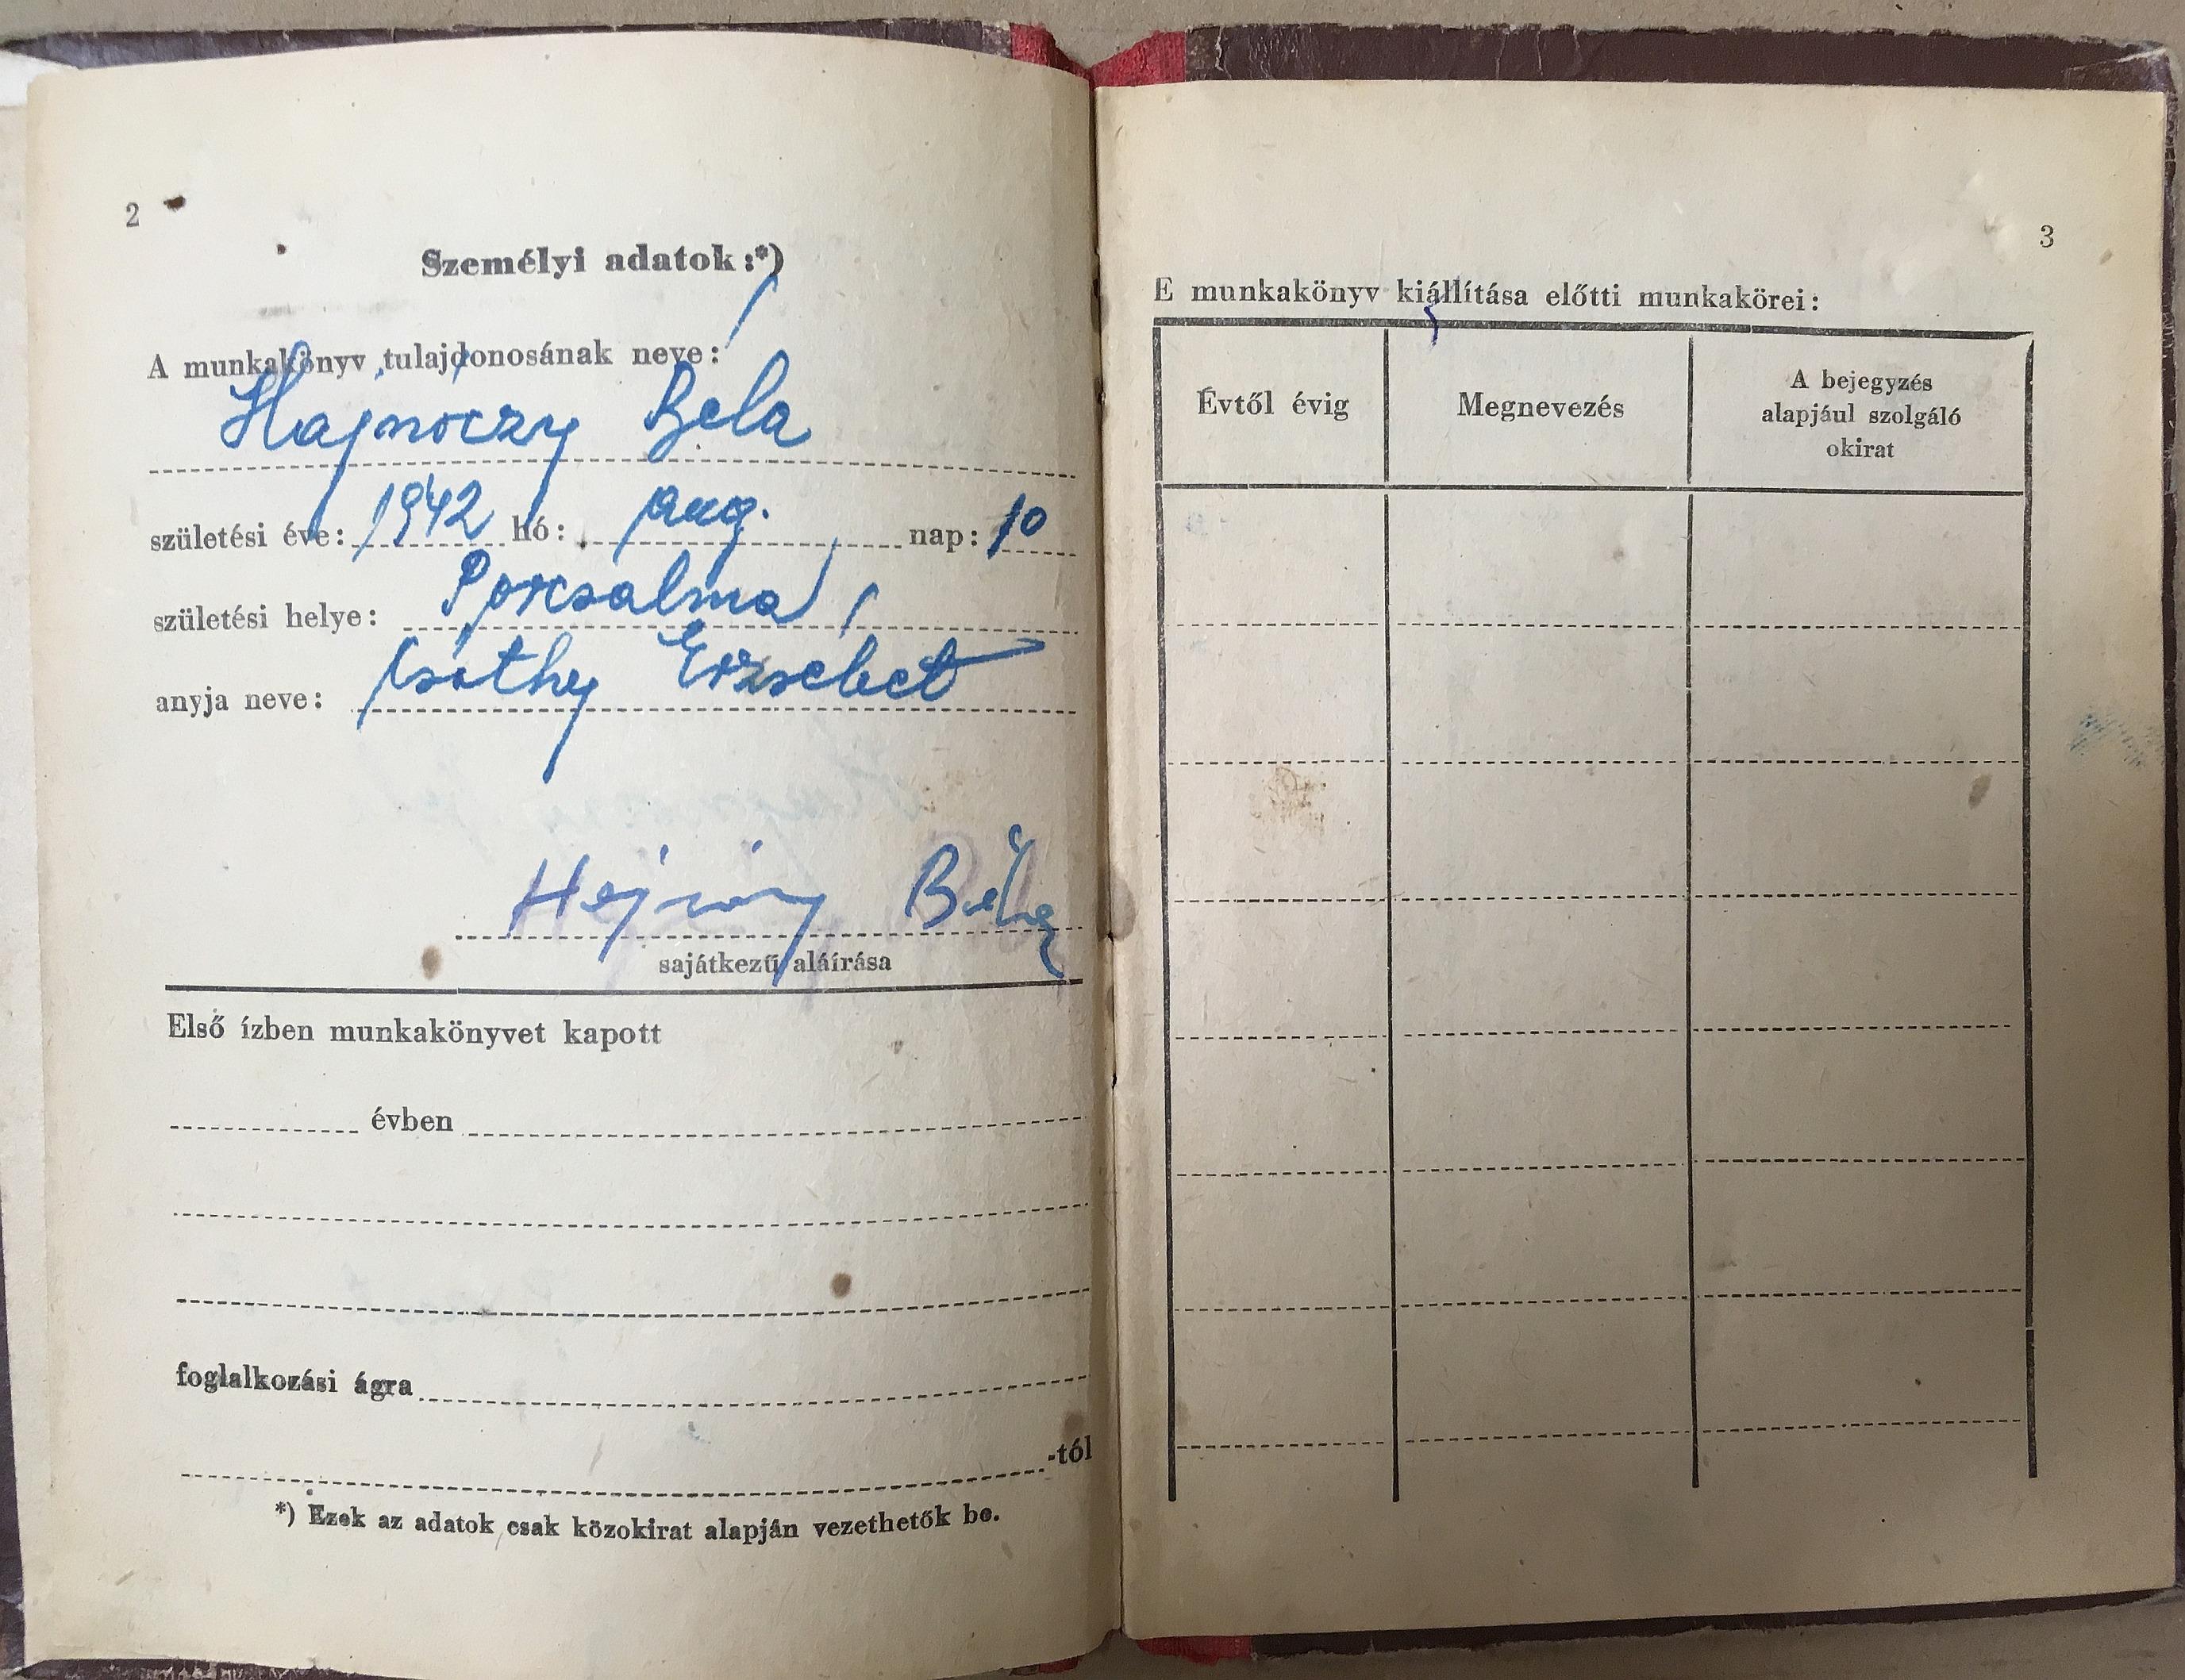 2
Személyi adatok:*)
A munkakönyv tulajdonosának neve:
Hajnóczy Béla
születési éve: 1942 hó: aug. nap: 10
születési helye: Porcsalma
anyja neve: Csóthy Erzsébet
Hajnóczy Béla
sajátkezű aláírása
Első ízben munkakönyvet kapott
évben
foglalkozási ágra
-tól
*) Ezek az adatok csak közokirat alapján vezethetők be.
3
E munkakönyv kiállítása előtti munkakörei:
Évtől évig
Megnevezés
A bejegyzés
alapjául szolgáló
okirat